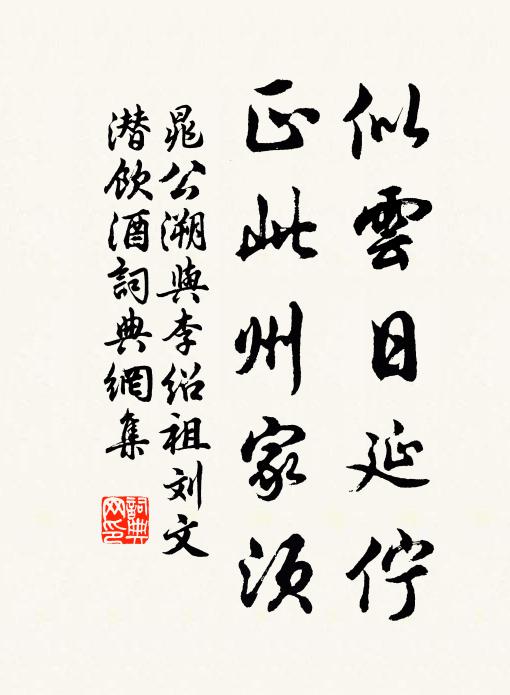 似雲日延佇
正此州家須
晁公溯與李绍祖刘文
潜飲酒詞典網集
詞典
网印